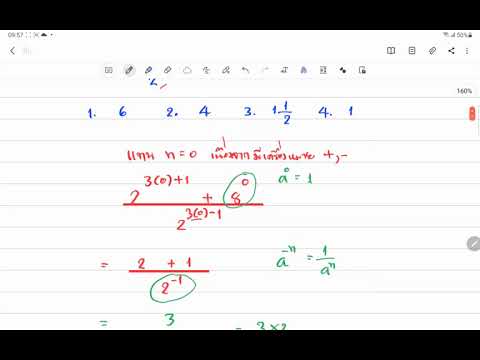 09:57 50%
160%
1. 6 2. 4 3. 1 1/2 4. 1
แทน n=0 เนื่องจากมีเครื่องหมาย +,-
2^(3(0)+1) + 8^0 a^0 = 1
2^(3(0)-1)
= 2 + 1 a^-n = 1/a^n
2^-1
= 3 = 3×2